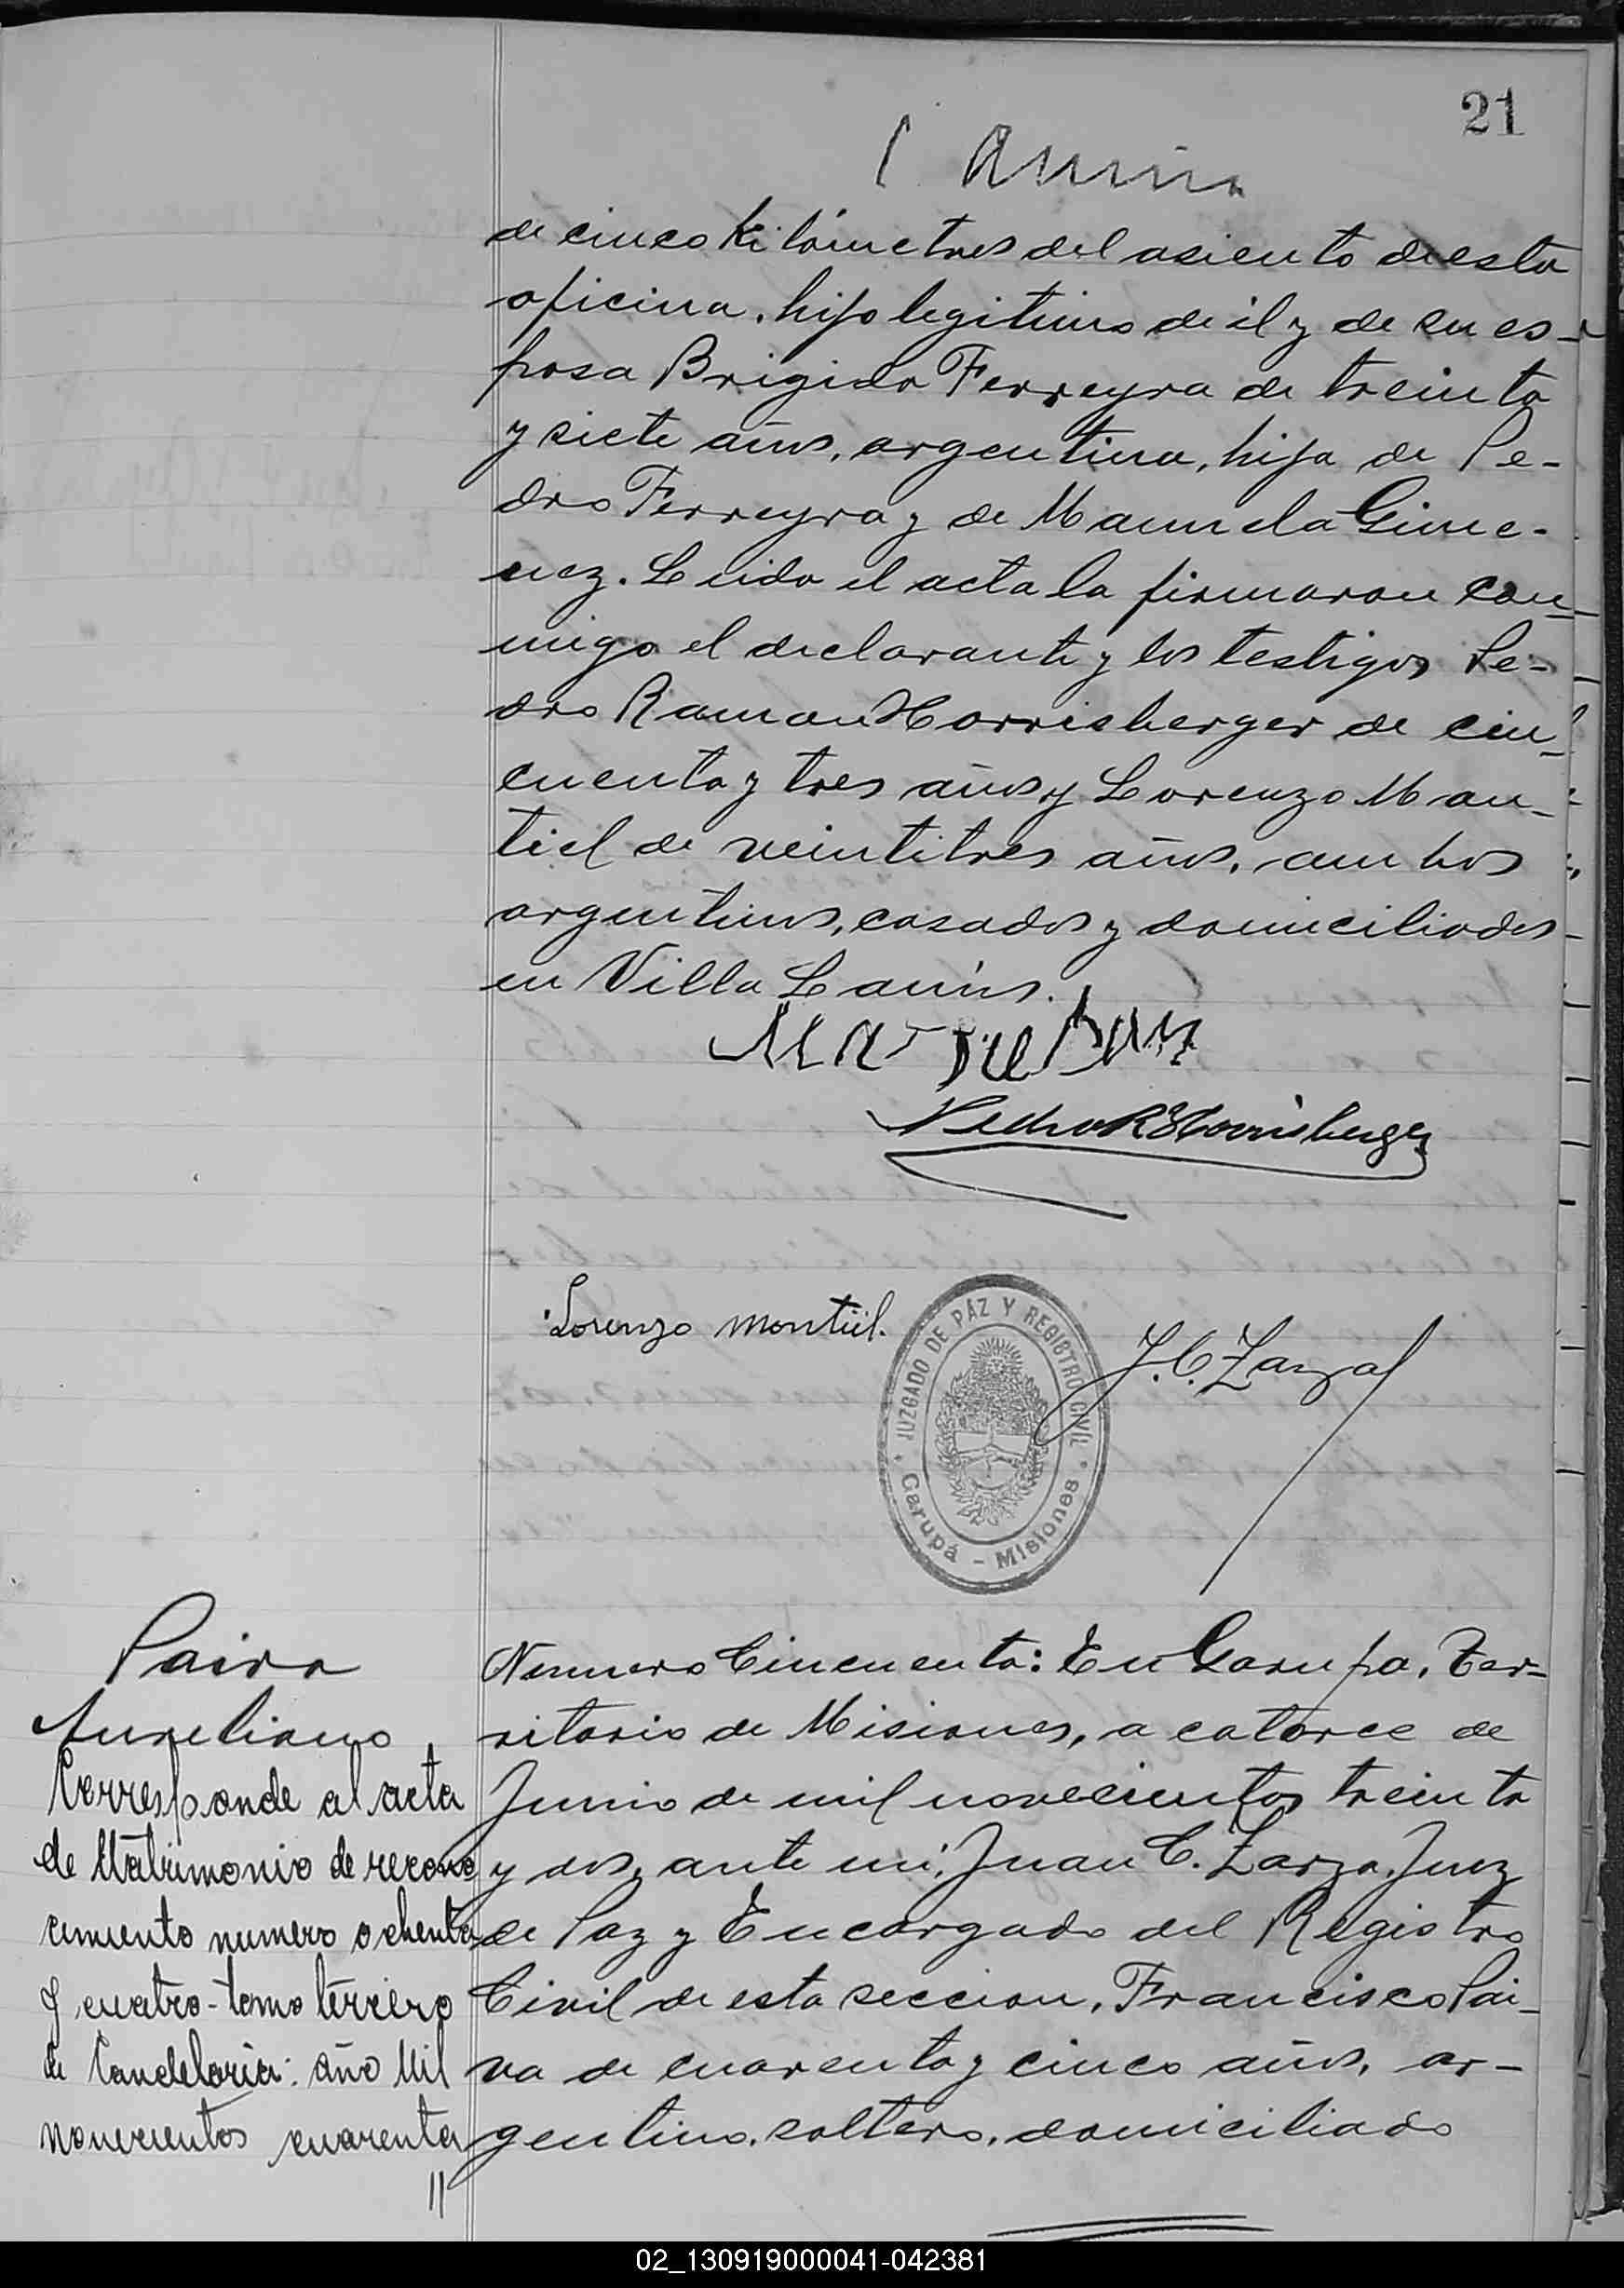 21
de cinco kilómetros del asiento de esta
oficina, hijo legitimo de él y de su es-
posa Brigida Ferreyra de treinta
y siete años, argentina, hija de Pe-
dro Ferreyra y de Manuela Gime-
nez. Leida el acta la firmaron con-
migo el declarante y los testigos Pe-
dro Ramon Horrisberger de cin-
cuenta y tres años y Lorenzo Mon-
tiel de veintitres años, ambos
argentinos, casados y domiciliados
en Villa Lanús.
Pedro R Horrisberger
Lorenzo Montiel.
JUZGADO DE PAZ Y REGISTRO CIVIL
Garupá - Misiones
J. C. Zarza
Paiva
Aureliano
Corresponde al acta
de Matrimonio de recono
cimiento numero ochenta
y cuatro - tomo tercero
de Candelaria: año Mil
novecientos cuarenta
//
Numero Cincuenta: En Garupa, Ter-
ritorio de Misiones, a catorce de
Junio de mil novecientos treinta
y dos, ante mi, Juan C. Zarza, Juez
de Paz y Encargado del Registro
Civil de esta seccion, Francisco Pai-
va de cuarenta y cinco años, ar-
gentino, soltero, domiciliado
02_130919000041-042381